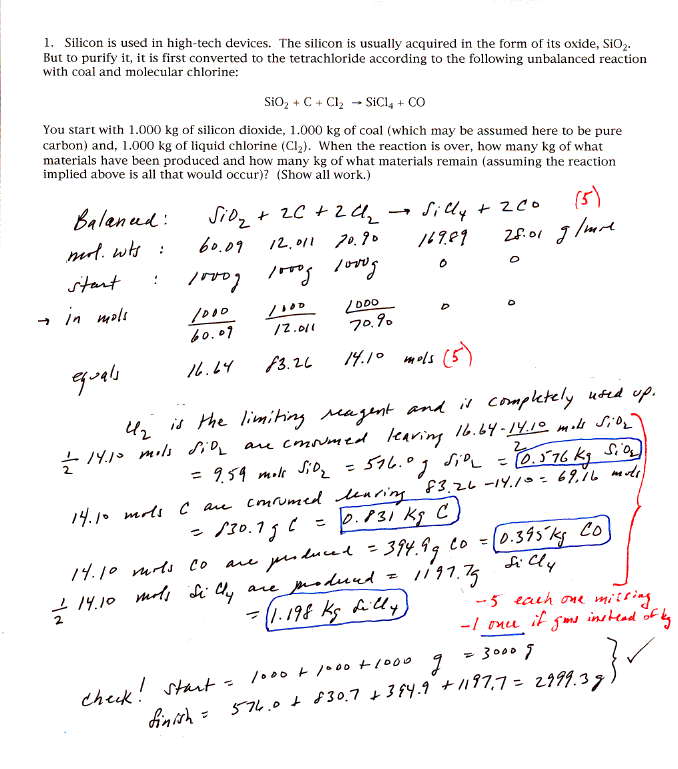 1. Silicon is used in high-tech devices. The silicon is usually acquired in the form of its oxide, SiO₂.
But to purify it, it is first converted to the tetrachloride according to the following unbalanced reaction
with coal and molecular chlorine:
SiO₂ + C + Cl₂ → SiCl₄ + CO
You start with 1.000 kg of silicon dioxide, 1.000 kg of coal (which may be assumed here to be pure
carbon) and, 1.000 kg of liquid chlorine (Cl₂). When the reaction is over, how many kg of what
materials have been produced and how many kg of what materials remain (assuming the reaction
implied above is all that would occur)? (Show all work.)
Balanced: SiO₂ + 2C + 2Cl₂ → SiCl₄ + 2CO (5)
mol. wts : 60.09 12.011 70.90 169.89 28.01 g/mol
start : 1000g 1000g 1000g 0 0
→ in mols 1000/60.09 1000/12.011 1000/70.90 0 0
equals 16.64 83.26 14.10 mols (5)
Cl₂ is the limiting reagent and is completely used up.
½ 14.10 mols SiO₂ are consumed leaving 16.64 - 14.10/2 mols SiO₂
= 9.59 mols SiO₂ = 576.0 g SiO₂ = 0.576 kg SiO₂
14.10 mols C are consumed leaving 83.26 - 14.10 = 69.16 mols
= 830.7 g C = 0.831 kg C
14.10 mols CO are produced = 394.9g CO = 0.395 kg CO
½ 14.10 mols SiCl₄ are produced = 1197.7g SiCl₄
= 1.198 kg SiCl₄
-5 each one missing
-1 once if gms instead of kg
check! start = 1000 + 1000 + 1000 g = 3000 g
finish = 576.0 + 830.7 + 394.9 + 1197.7 = 2999.3 g ✓